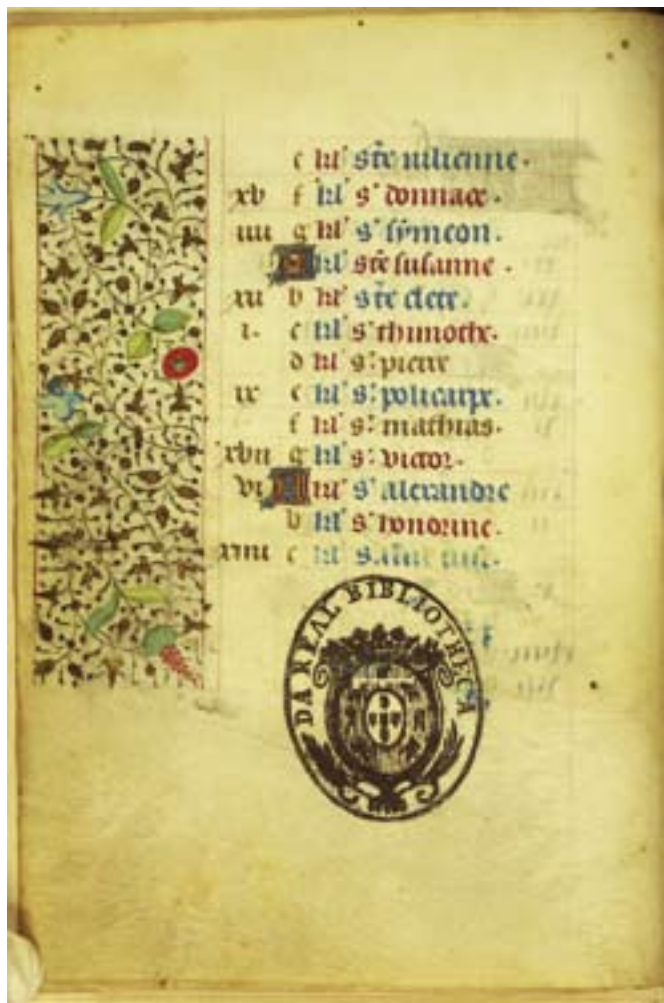 e kl' ste iulienne.
xv f kl' s' donnace.
iiii g kl' s' symeon.
A kl' ste susanne.
xii b kl' ste clere.
i. c kl' s' thimothe.
d kl' s' pierre
ix e kl' s' policarpe.
f kl' s' mathias.
xvii g kl' s' victor.
vi A kl' s' alexandre
b kl' s' honorine.
xiiii c kl'
DA REAL BIBLIOTHECA